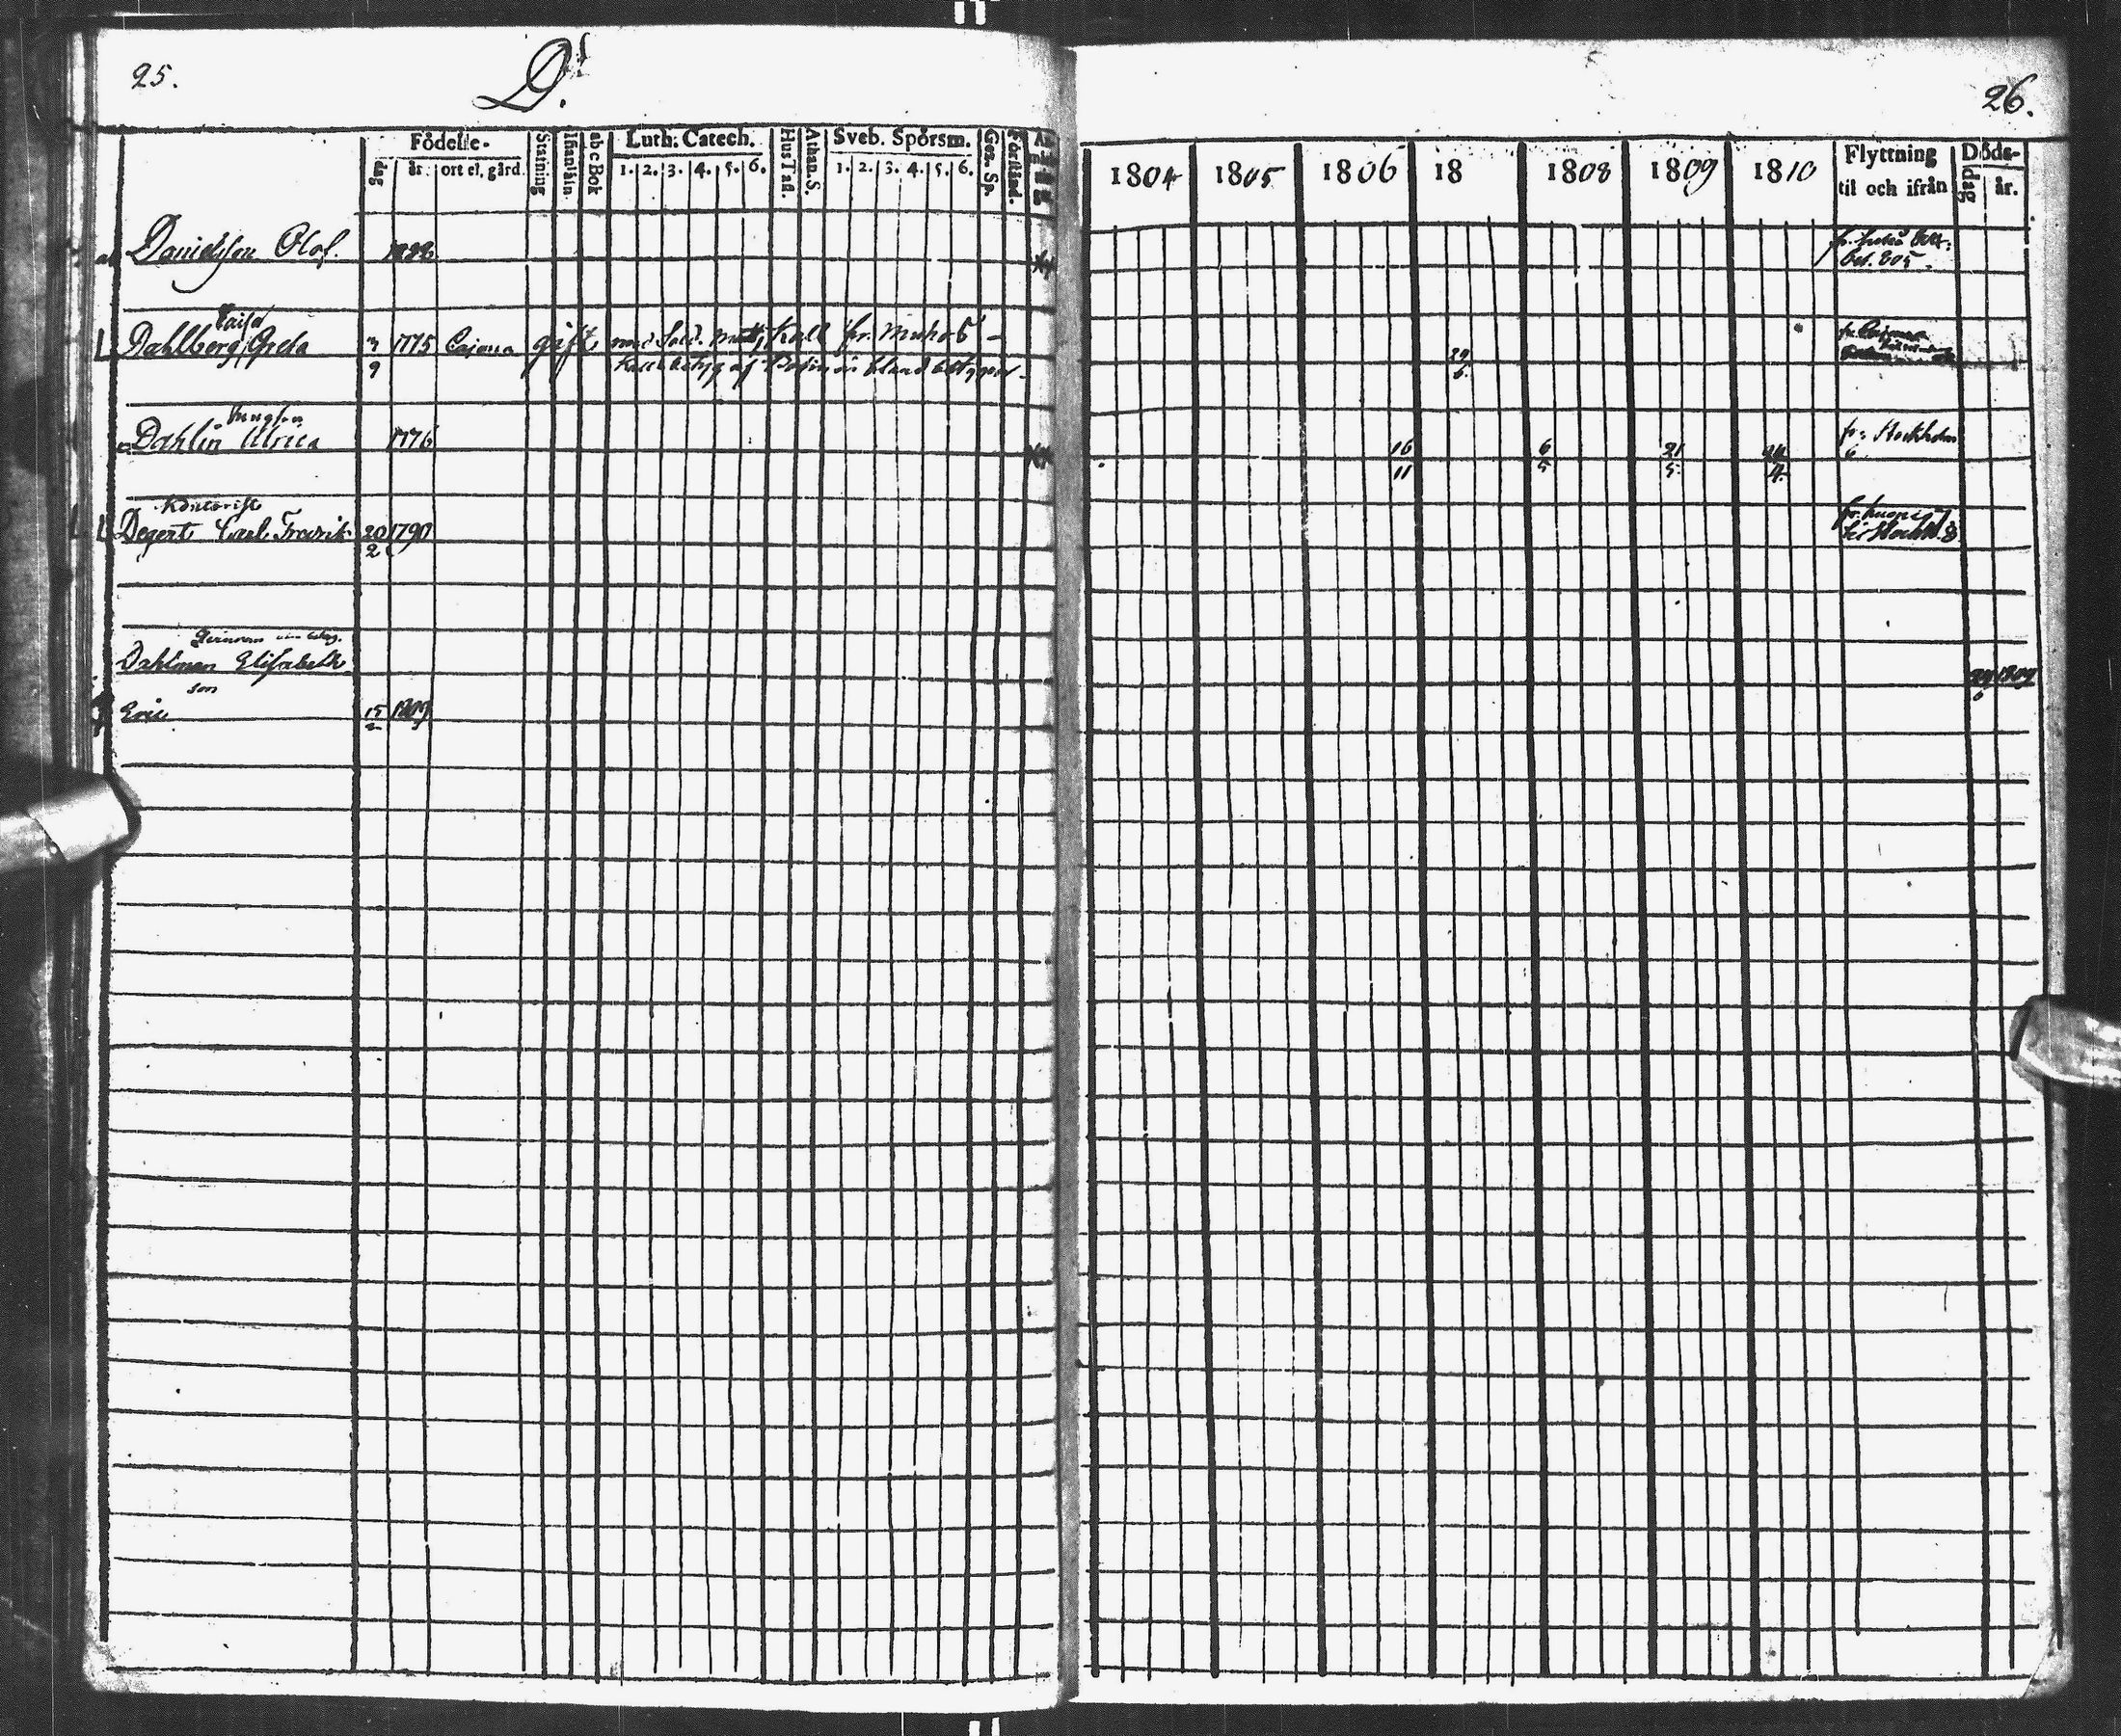 25.
D.
Födelse-
dag
år.
ort el. gård.
Stafning
Innanläsn.
abcBok
Luth. Catech.
1. 2. 3. 4. 5. 6.
Hus Tafl.
Athan. S.
Sveb. Spörsm.
1. 2. 3. 4. 5. 6.
Gez. Sp.
Förstånd.
Danielsson Olof.
Dahlberg Greta
3 1775 Cajana gift med Sold. Matts Kall fr. Muhos -
9
bland
Jungfru
Dahlin Ulrica 1776
Kontorist
Degert Carl Fredrik 20 1790
2
Dahlman Elisabeth
son
Eric 15 1809
26.
1804 1805 1806 18 1808 1809 1810
Flyttning
til och ifrån
Döds-
dag
år.
bet. 805.
fr. Cajana
29
6.
16 6 21 24
11 5 5 4
fr. Stockholm
6
til Stockh. 8
29 1809
6